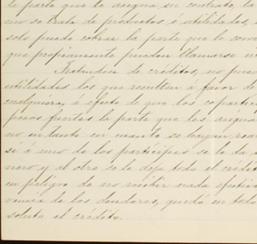 la parte que le asigna su contrato, la
se trata de productos ó utilidades,
solo puede cobrar la parte que le
que propiamente puedan llamarse
Tratandose de créditos, no pueden
utilidades los que resultan á favor de
cualquiera, á efecto de que los copartici
la parte que les asigna
no en tanto en cuanto se hayan
si á uno de los partícipes se le da
nero y al otro se le deja todo el crédito
en peligro de no recibir nada
vencia de los deudores, queda en
soluta el crédito.